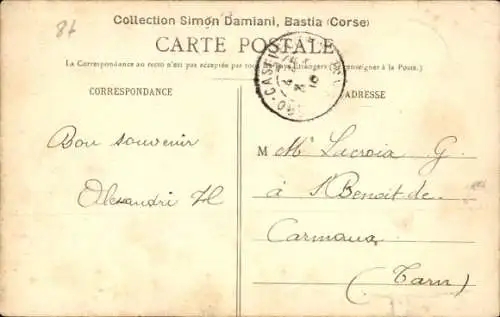 86
Collection Simon Damiani, Bastia (Corse)
CARTE POSTALE
La Correspondance au recto n'est pas acceptée par tous les pays Etrangers (Se renseigner à la Poste.)
CORRESPONDANCE
ADRESSE
Bon souvenir
Alexandri H
M Mr Lacroix G.
à St Benoit-de-
Carmaux
(Tarn)